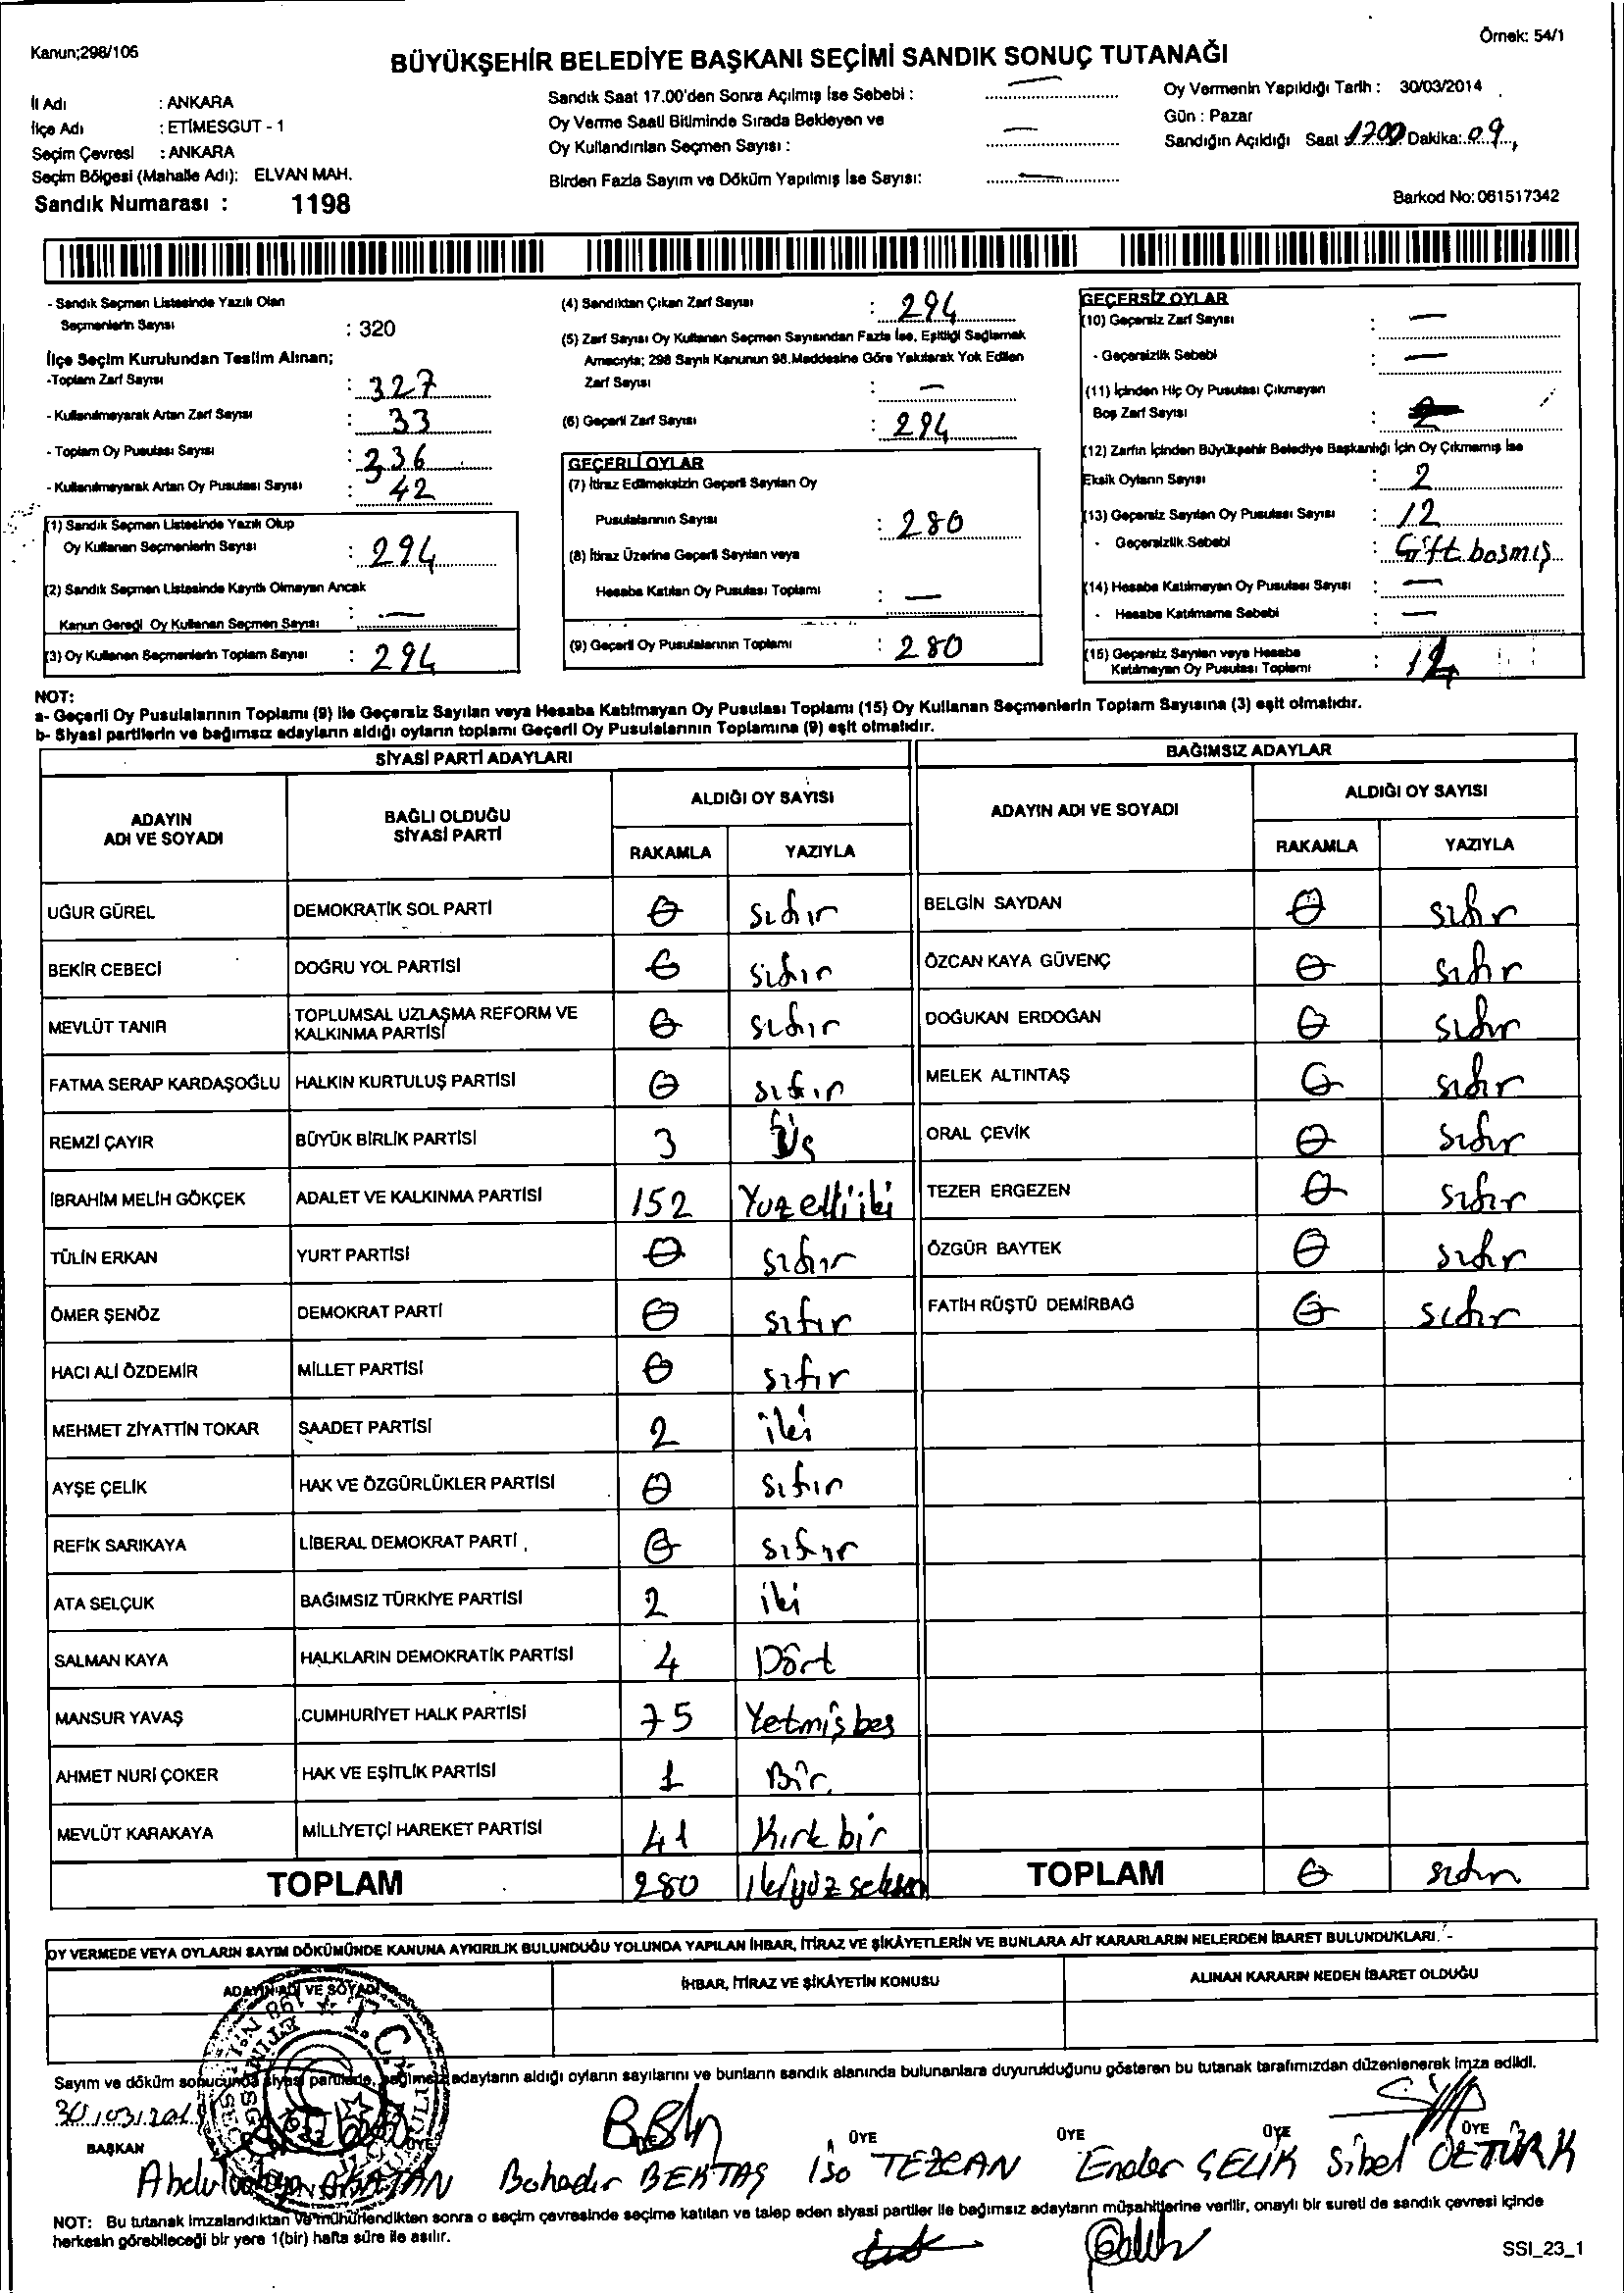 Kanun;298/105
Örnek: 54/1
BÜYÜKŞEHİR BELEDİYE BAŞKANI SEÇİMİ SANDIK SONUÇ TUTANAĞI
İl Adı : ANKARA
İlçe Adı : ETİMESGUT - 1
Seçim Çevresi : ANKARA
Seçim Bölgesi (Mahalle Adı): ELVAN MAH.
Sandık Numarası : 1198
Sandık Saat 17.00'den Sonra Açılmış İse Sebebi : —
Oy Verme Saati Bitiminde Sırada Bekleyen ve
Oy Kullandırılan Seçmen Sayısı : —
Birden Fazla Sayım ve Döküm Yapılmış İse Sayısı: —
Oy Vermenin Yapıldığı Tarih : 30/03/2014
Gün : Pazar
Sandığın Açıldığı Saat 1700 Dakika: 09
Barkod No: 061517342
- Sandık Seçmen Listesinde Yazılı Olan
Seçmenlerin Sayısı : 320
İlçe Seçim Kurulundan Teslim Alınan;
-Toplam Zarf Sayısı : 327
- Kullanılmayarak Artan Zarf Sayısı : 33
- Toplam Oy Pusulası Sayısı : 336
- Kullanılmayarak Artan Oy Pusulası Sayısı : 42
(1) Sandık Seçmen Listesinde Yazılı Olup
Oy Kullanan Seçmenlerin Sayısı : 294
(2) Sandık Seçmen Listesinde Kayıtlı Olmayan Ancak
Kanun Gereği Oy Kullanan Seçmen Sayısı : —
(3) Oy Kullanan Seçmenlerin Toplam Sayısı : 294
(4) Sandıktan Çıkan Zarf Sayısı : 294
(5) Zarf Sayısı Oy Kullanan Seçmen Sayısından Fazla İse, Eşitliği Sağlamak
Amacıyla; 298 Sayılı Kanunun 98.Maddesine Göre Yakılarak Yok Edilen
Zarf Sayısı : —
(6) Geçerli Zarf Sayısı : 294
GEÇERLİ OYLAR
(7) İtiraz Edilmeksizin Geçerli Sayılan Oy
Pusulalarının Sayısı : 280
(8) İtiraz Üzerine Geçerli Sayılan veya
Hesaba Katılan Oy Pusulası Toplamı : —
(9) Geçerli Oy Pusulalarının Toplamı : 280
GEÇERSİZ OYLAR
(10) Geçersiz Zarf Sayısı : —
- Geçersizlik Sebebi : —
(11) İçinden Hiç Oy Pusulası Çıkmayan
Boş Zarf Sayısı :
(12) Zarfın İçinden Büyükşehir Belediye Başkanlığı İçin Oy Çıkmamış İse
Eksik Oyların Sayısı : 2
(13) Geçersiz Sayılan Oy Pusulası Sayısı : 12
- Geçersizlik Sebebi : Çift basmış
(14) Hesaba Katılmayan Oy Pusulası Sayısı : —
- Hesaba Katılmama Sebebi : —
(15) Geçersiz Sayılan veya Hesaba
Katılmayan Oy Pusulası Toplamı : 14
NOT:
a- Geçerli Oy Pusulalarının Toplamı (9) ile Geçersiz Sayılan veya Hesaba Katılmayan Oy Pusulası Toplamı (15) Oy Kullanan Seçmenlerin Toplam Sayısına (3) eşit olmalıdır.
b- Siyasi partilerin ve bağımsız adayların aldığı oyların toplamı Geçerli Oy Pusulalarının Toplamına (9) eşit olmalıdır.
SİYASİ PARTİ ADAYLARI
ADAYIN ADI VE SOYADI BAĞLI OLDUĞU SİYASİ PARTİ ALDIĞI OY SAYISI RAKAMLA YAZIYLA
UĞUR GÜREL DEMOKRATİK SOL PARTİ 0 sıfır
BEKİR CEBECİ DOĞRU YOL PARTİSİ 0 sıfır
MEVLÜT TANIR TOPLUMSAL UZLAŞMA REFORM VE KALKINMA PARTİSİ 0 sıfır
FATMA SERAP KARDAŞOĞLU HALKIN KURTULUŞ PARTİSİ 0 sıfır
REMZİ ÇAYIR BÜYÜK BİRLİK PARTİSİ 3 Üç
İBRAHİM MELİH GÖKÇEK ADALET VE KALKINMA PARTİSİ 152 Yüz elli iki
TÜLİN ERKAN YURT PARTİSİ 0 sıfır
ÖMER ŞENÖZ DEMOKRAT PARTİ 0 sıfır
HACI ALİ ÖZDEMİR MİLLET PARTİSİ 0 sıfır
MEHMET ZİYATTİN TOKAR SAADET PARTİSİ 2 iki
AYŞE ÇELİK HAK VE ÖZGÜRLÜKLER PARTİSİ 0 sıfır
REFİK SARIKAYA LİBERAL DEMOKRAT PARTİ 0 sıfır
ATA SELÇUK BAĞIMSIZ TÜRKİYE PARTİSİ 2 iki
SALMAN KAYA HALKLARIN DEMOKRATİK PARTİSİ 4 Dört
MANSUR YAVAŞ CUMHURİYET HALK PARTİSİ 75 Yetmiş beş
AHMET NURİ ÇOKER HAK VE EŞİTLİK PARTİSİ 1 Bir
MEVLÜT KARAKAYA MİLLİYETÇİ HAREKET PARTİSİ 41 Kırk bir
TOPLAM 280 ikiyüz seksen
BAĞIMSIZ ADAYLAR
ADAYIN ADI VE SOYADI ALDIĞI OY SAYISI RAKAMLA YAZIYLA
BELGİN SAYDAN 0 sıfır
ÖZCAN KAYA GÜVENÇ 0 sıfır
DOĞUKAN ERDOĞAN 0 sıfır
MELEK ALTINTAŞ 0 sıfır
ORAL ÇEVİK 0 sıfır
TEZER ERGEZEN 0 sıfır
ÖZGÜR BAYTEK 0 sıfır
FATİH RÜŞTÜ DEMİRBAĞ 0 sıfır
TOPLAM 0 sıfır
OY VERMEDE VEYA OYLARIN SAYIM DÖKÜMÜNDE KANUNA AYKIRILIK BULUNDUĞU YOLUNDA YAPILAN İHBAR, İTİRAZ VE ŞİKÂYETLERİN VE BUNLARA AİT KARARLARIN NELERDEN İBARET BULUNDUKLARI.
ADAYIN ADI VE SOYADI İHBAR, İTİRAZ VE ŞİKÂYETİN KONUSU ALINAN KARARIN NEDEN İBARET OLDUĞU
Sayım ve döküm sonucunda siyasi partilerin, bağımsız adayların aldığı oyların sayılarını ve bunların sandık alanında bulunanlara duyurulduğunu gösteren bu tutanak tarafımızdan düzenlenerek imza edildi.
30/03/201
BAŞKAN ÜYE ÜYE ÜYE ÜYE ÜYE
Bahadır BEKTAŞ İso TEZCAN Ender ÇELİK Sibel ÖZTÜRK
NOT: Bu tutanak imzalandıktan ve mühürlendikten sonra o seçim çevresinde seçime katılan ve talep eden siyasi partiler ile bağımsız adayların müşahitlerine verilir, onaylı bir sureti de sandık çevresi içinde
herkesin görebileceği bir yere 1(bir) hafta süre ile asılır.
SSI_23_1